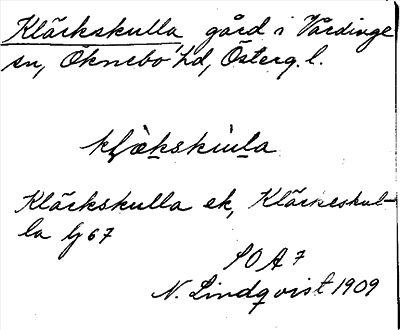 Kläckskulla gård i Vårdinge
sn, Öknebo hd, Österg. l.
Kläckskulla ek, Kläckeskul-
la lj 67
SOA 7
N. Lindqvist 1909